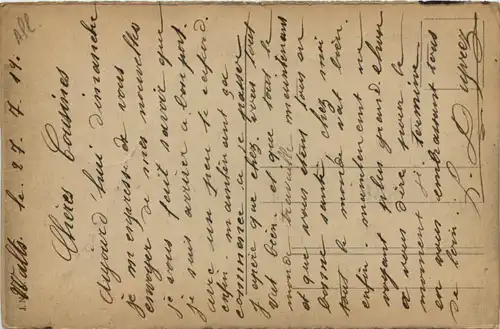 Walls. le. 27. 7. 19.
Chères Cousines
Aujourd'hui dimanche
je m'empresse de vous
envoyer de mes nouvelles
je vous feuit savoir que
je suis arriver a bon port
avec un peu de retard.
enfin maintenant ça
commence a se passer
j'espere que chez vous tout
vat bien. et que tout le
monde travaille maintenant
et que vous etent tous en
bonne santé chez moi
tout le monde vat bien.
enfin. maintenent ne
voyant plus grand chose
a vous dire pour le
moment je termine
en vous embrassant tous
de loin.
Duprez